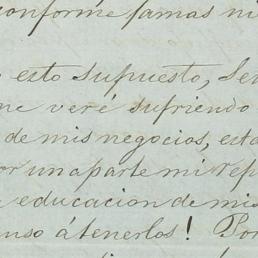 conforme jamas ni
esto supuesto, Se
me veré sufriendo
de mis negocios, esta
or una parte mi rep
educacion de mis
enso á tenerlos! Por